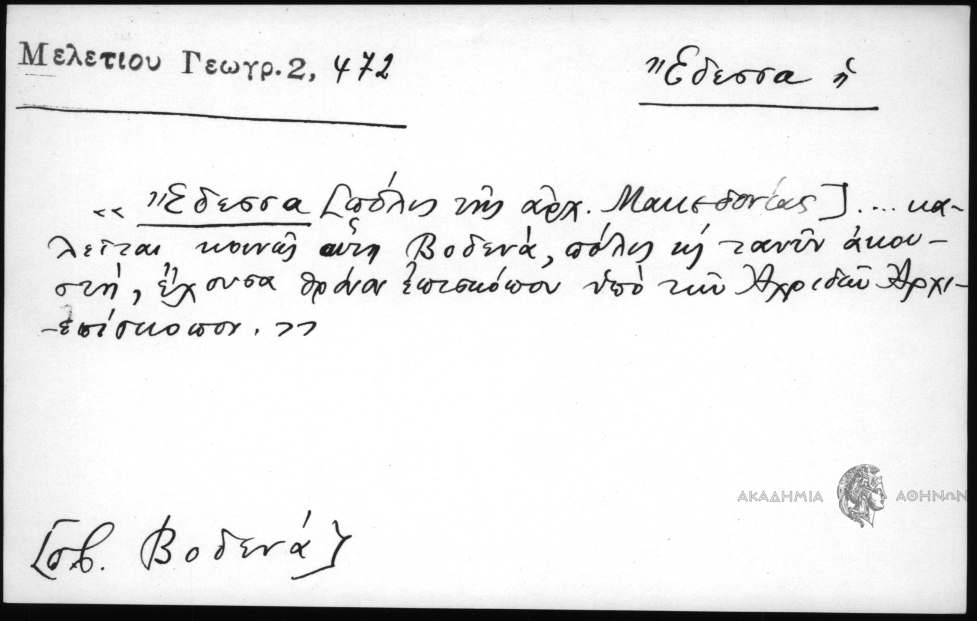 Μελετίου Γεωγρ. 2, 472
Ἔδεσσα ἡ
«Ἔδεσσα [πόλις τῆς ἀρχ. Μακεδονίας] .... κα-
λεῖται κοινῶς αὕτη Βοδενά, πόλις κ̀ τανῦν ἀκου-
στή, ἔχουσα θρόνον ἐπισκόπου ὑπὸ τὸν Ἀχριδῶν Ἀρχι-
-επίσκοπον.»
[σβ. Βοδενά]
ΑΚΑΔΗΜΙΑ ΑΘΗΝΩΝ